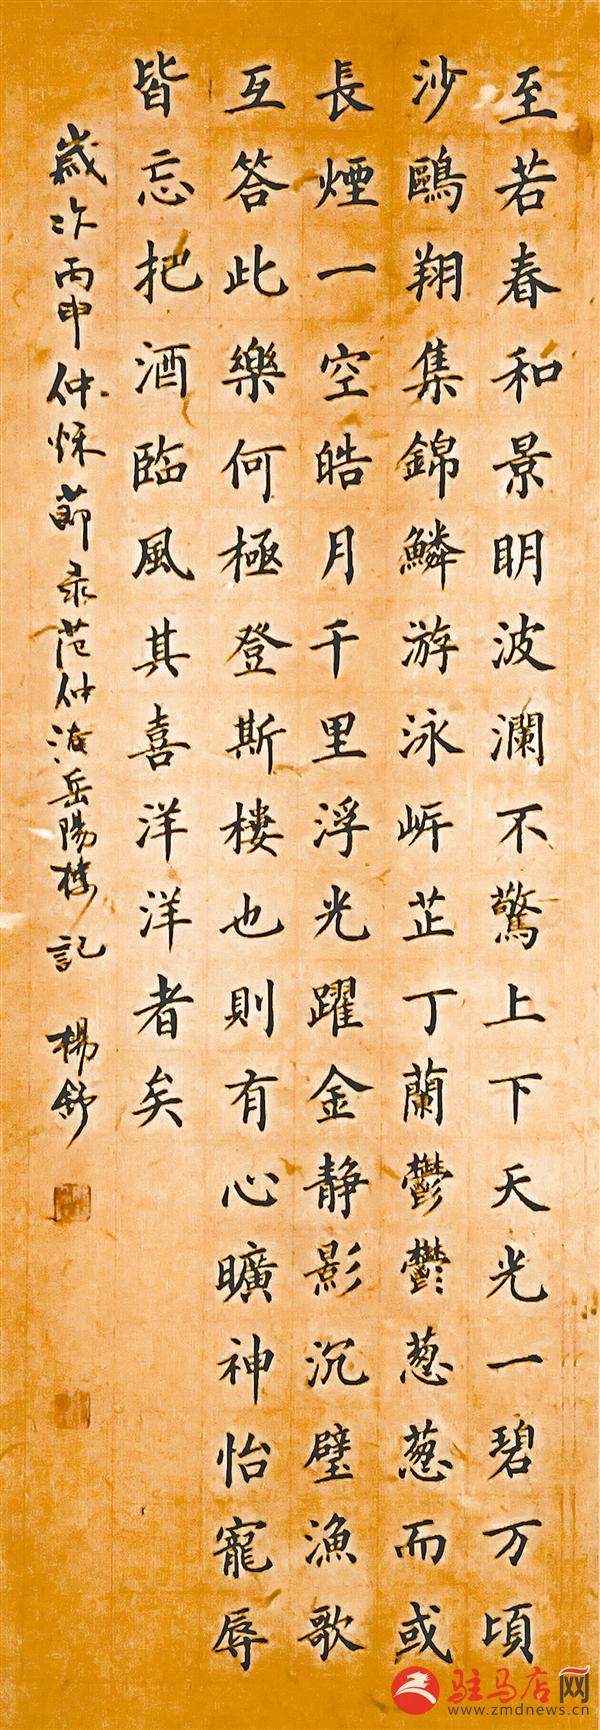 至若春和景明波瀾不驚上下天光一碧万頃
沙鷗翔集錦鱗游泳岓芷丁蘭鬱鬱葱葱而或
長煙一空皓月千里浮光躍金静影沉璧漁歌
互答此樂何極登斯樓也則有心曠神怡寵辱
皆忘把酒臨風其喜洋洋者矣
歲次丙申仲秌節录范仲淹岳陽樓記 楊舒
驻马店网
www.zmdnews.cn